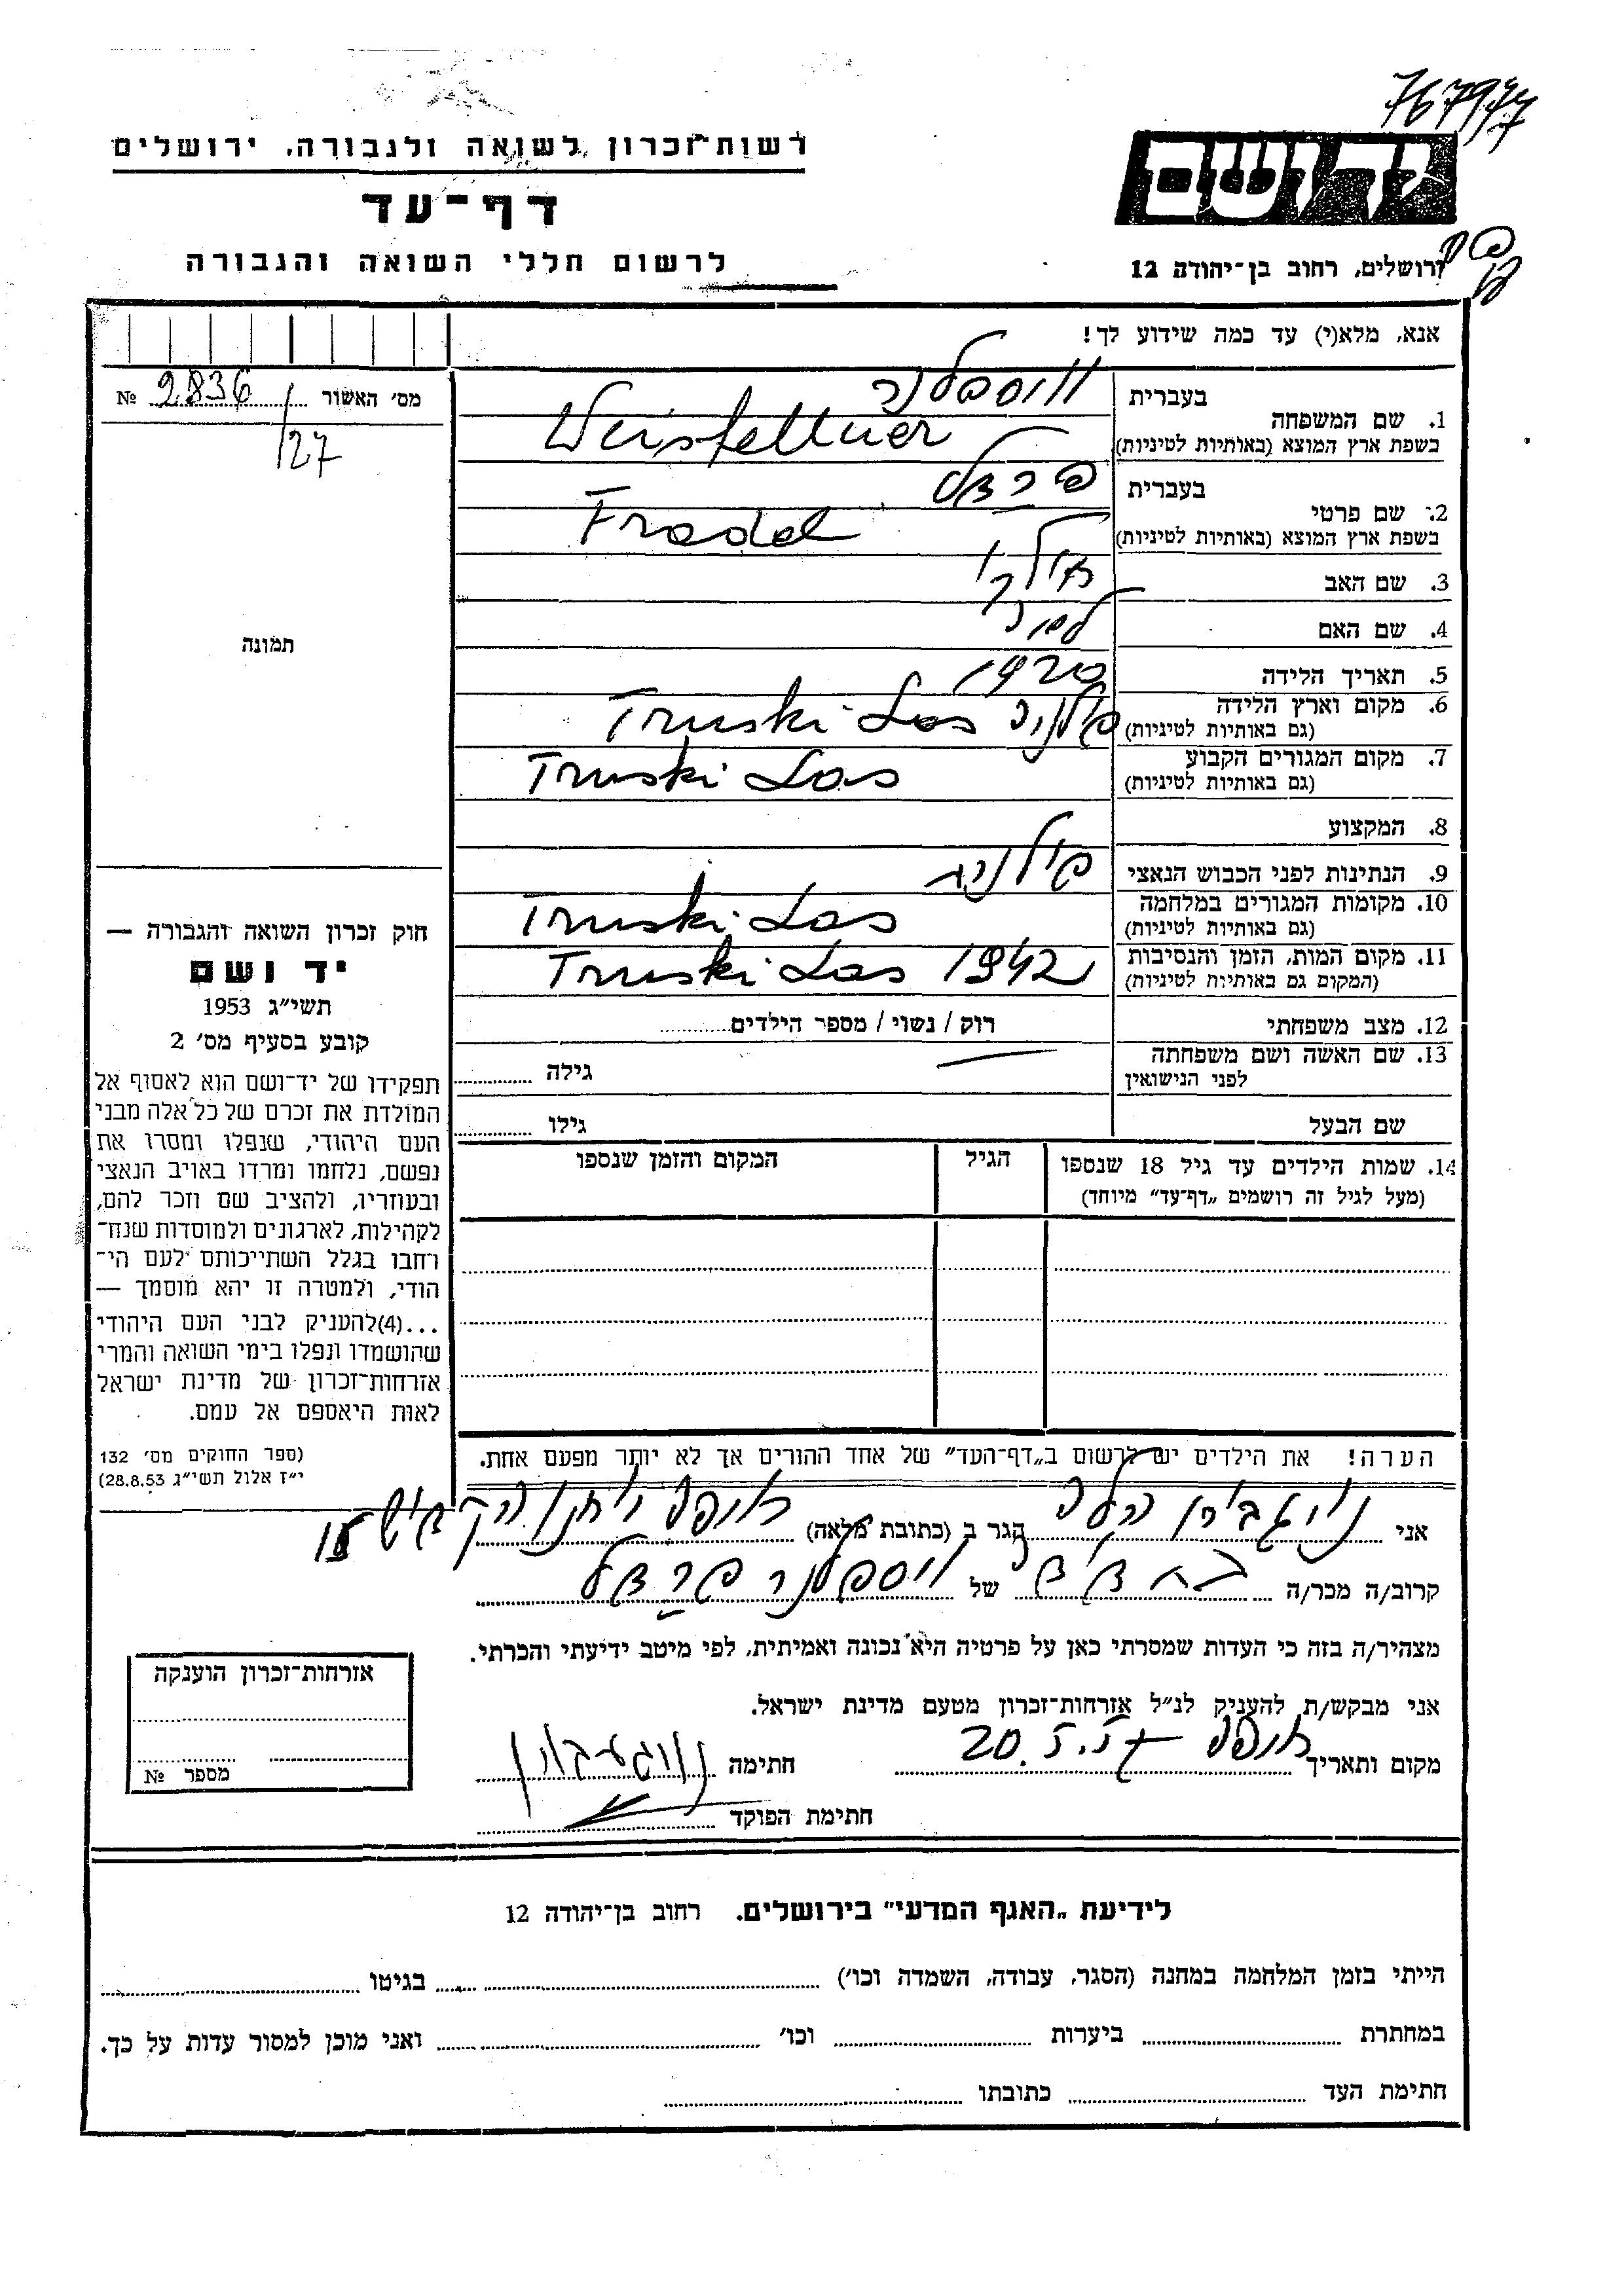 767977
רשות־זכרון לשואה ולגבורה, ירושלים
דף־עד
לרשום חללי השואה והגבורה
ידושם
ירושלים, רחוב בן־יהודה 12
אנא, מלא(י) עד כמה שידוע לך!
מס׳ האשור 2836 №
127
תמונה
1. שם המשפחה
בעברית
בשפת ארץ המוצא (באותיות לטיניות) Weisfeltner
2. שם פרטי
בעברית פרדל
בשפת ארץ המוצא (באותיות לטיניות) Fradel
3. שם האב
4. שם האם
5. תאריך הלידה 1920
6. מקום וארץ הלידה
(גם באותיות לטיניות) פולניה Truski Las
7. מקום המגורים הקבוע
(גם באותיות לטיניות) Truski Las
8. המקצוע
9. הנתינות לפני הכבוש הנאצי פולניה
10. מקומות המגורים במלחמה
(גם באותיות לטיניות) Truski Las
11. מקום המות, הזמן והנסיבות
(המקום גם באותיות לטיניות) Truski Las 1942
12. מצב משפחתי רוק / נשוי / מספר הילדים
13. שם האשה ושם משפחתה
לפני הנישואין גילה
שם הבעל גילו
14. שמות הילדים עד גיל 18 שנספו הגיל המקום והזמן שנספו
(מעל לגיל זה רושמים „דף־עד״ מיוחד)
הערה! את הילדים יש לרשום ב„דף־העד״ של אחד ההורים אך לא יותר מפעם אחת.
חוק זכרון השואה והגבורה —
יד ושם
תשי״ג 1953
קובע בסעיף מס׳ 2
תפקידו של יד־ושם הוא לאסוף אל
המולדת את זכרם של כל אלה מבני
העם היהודי, שנפלו ומסרו את
נפשם, נלחמו ומרדו באויב הנאצי
ובעוזריו, ולהציב שם וזכר להם,
לקהילות, לארגונים ולמוסדות שנח־
רחבו בגלל השתייכותם לעם הי־
הודי, ולמטרה זו יהא מוסמך —
...(4)להעניק לבני העם היהודי
שהושמדו ונפלו בימי השואה והמרי
אזרחות־זכרון של מדינת ישראל
לאות היאספם אל עמם.
(ספר החוקים מס׳ 132
י״ז אלול תשי״ג 28.8.53)
אני הגר ב (כתובת מלאה)
קרוב/ה מכר/ה של פרדל
מצהיר/ה בזה כי העדות שמסרתי כאן על פרטיה היא נכונה ואמיתית, לפי מיטב ידיעתי והכרתי.
אני מבקש/ת להעניק לנ״ל אזרחות־זכרון מטעם מדינת ישראל.
מקום ותאריך 20.5.57 חתימה
חתימת הפוקד
אזרחות־זכרון הוענקה
מספר №
לידיעת „האגף המדעי״ בירושלים. רחוב בן־יהודה 12
הייתי בזמן המלחמה במחנה (הסגר, עבודה, השמדה וכו׳) בגיטו
במחתרת ביערות וכו׳ ואני מוכן למסור עדות על כך.
חתימת העד כתובתו